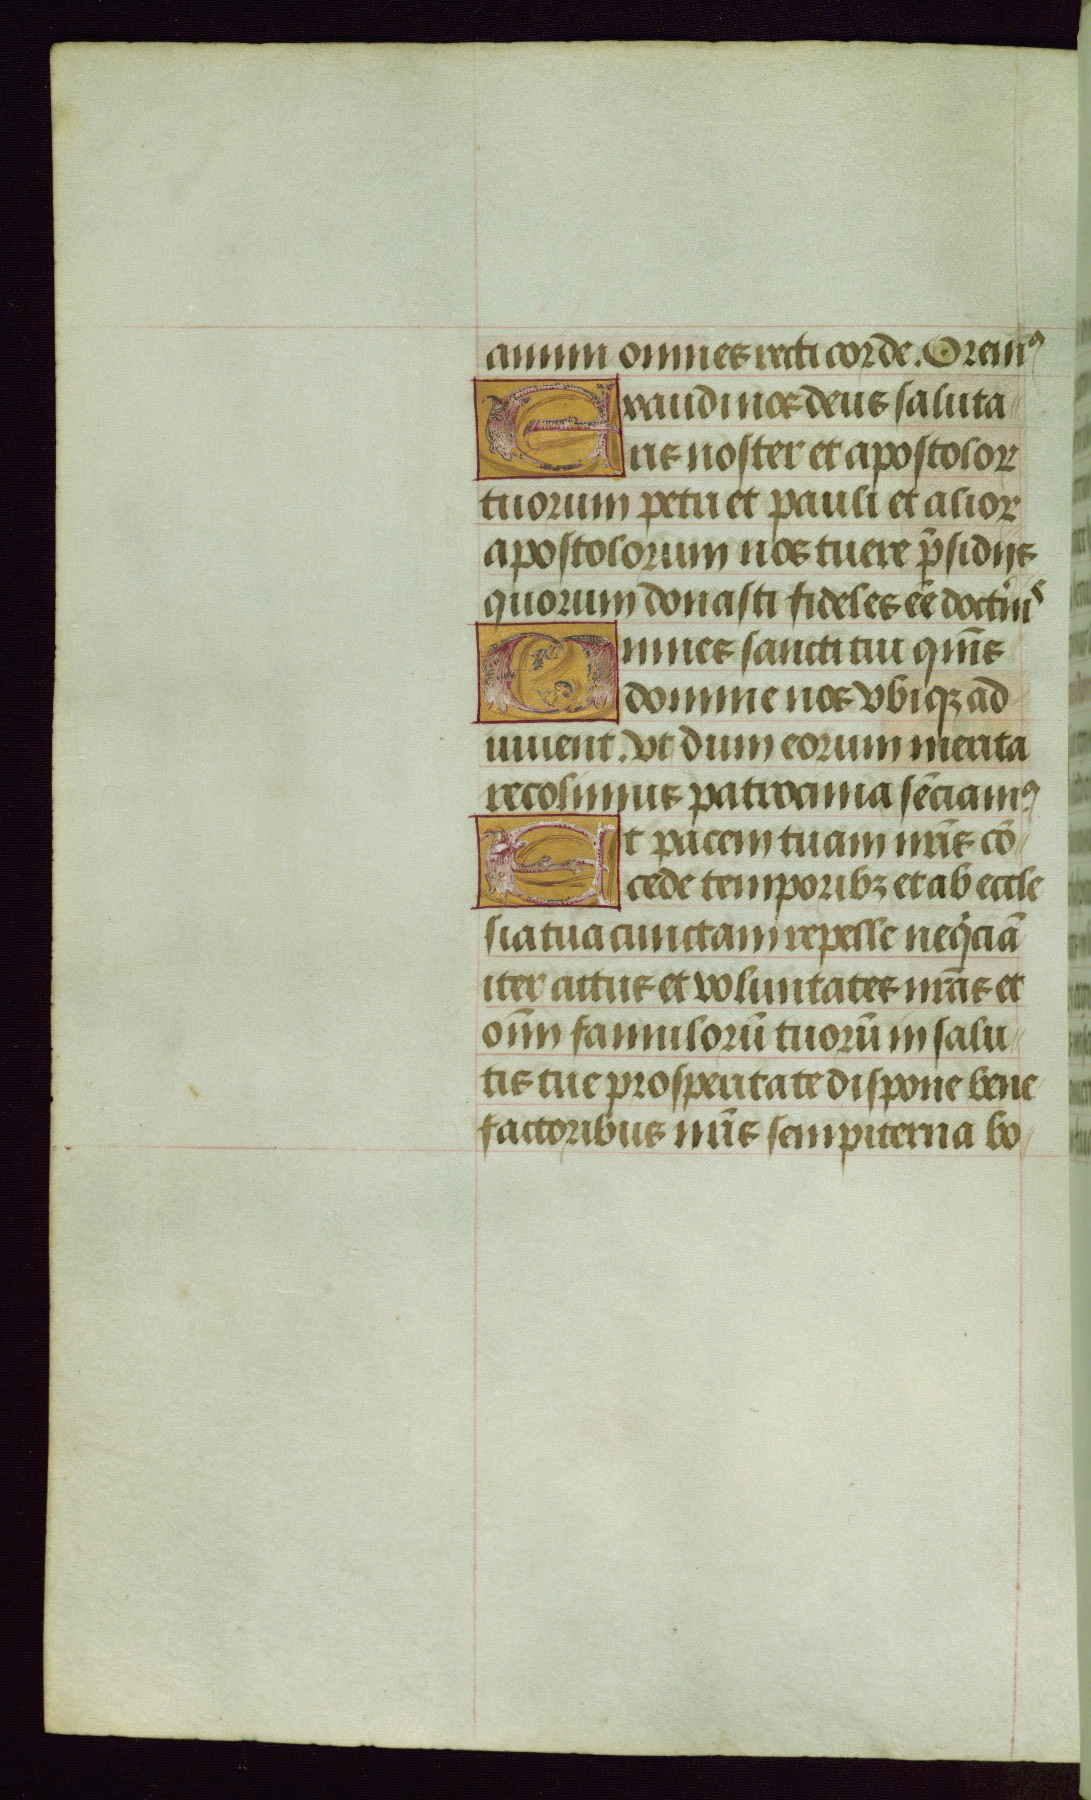 amini omnes recti corde. Orem⁹
Exaudi nos deus saluta
ris noster et apostolor
tuorum petri et pauli et alior
apostolorum nos tuere p̄sidijs
quorum donasti fideles eē doctrinis
Omnes sancti tui qm̄s
domine nos vbiqꝫ ad
iuuent. Vt dum eorum merita
recolimus patrocinia sēciam⁹
Et pacem tuam nr̄is cō
cede temporibꝫ et ab eccle
sia tua cunctam repelle neq̇ciā
iter actus et voluntates nr̄as et
om̄n famulorū tuorū in salu
tis tue prosperitate dispone bene
factoribus nr̄is sempiterna bo